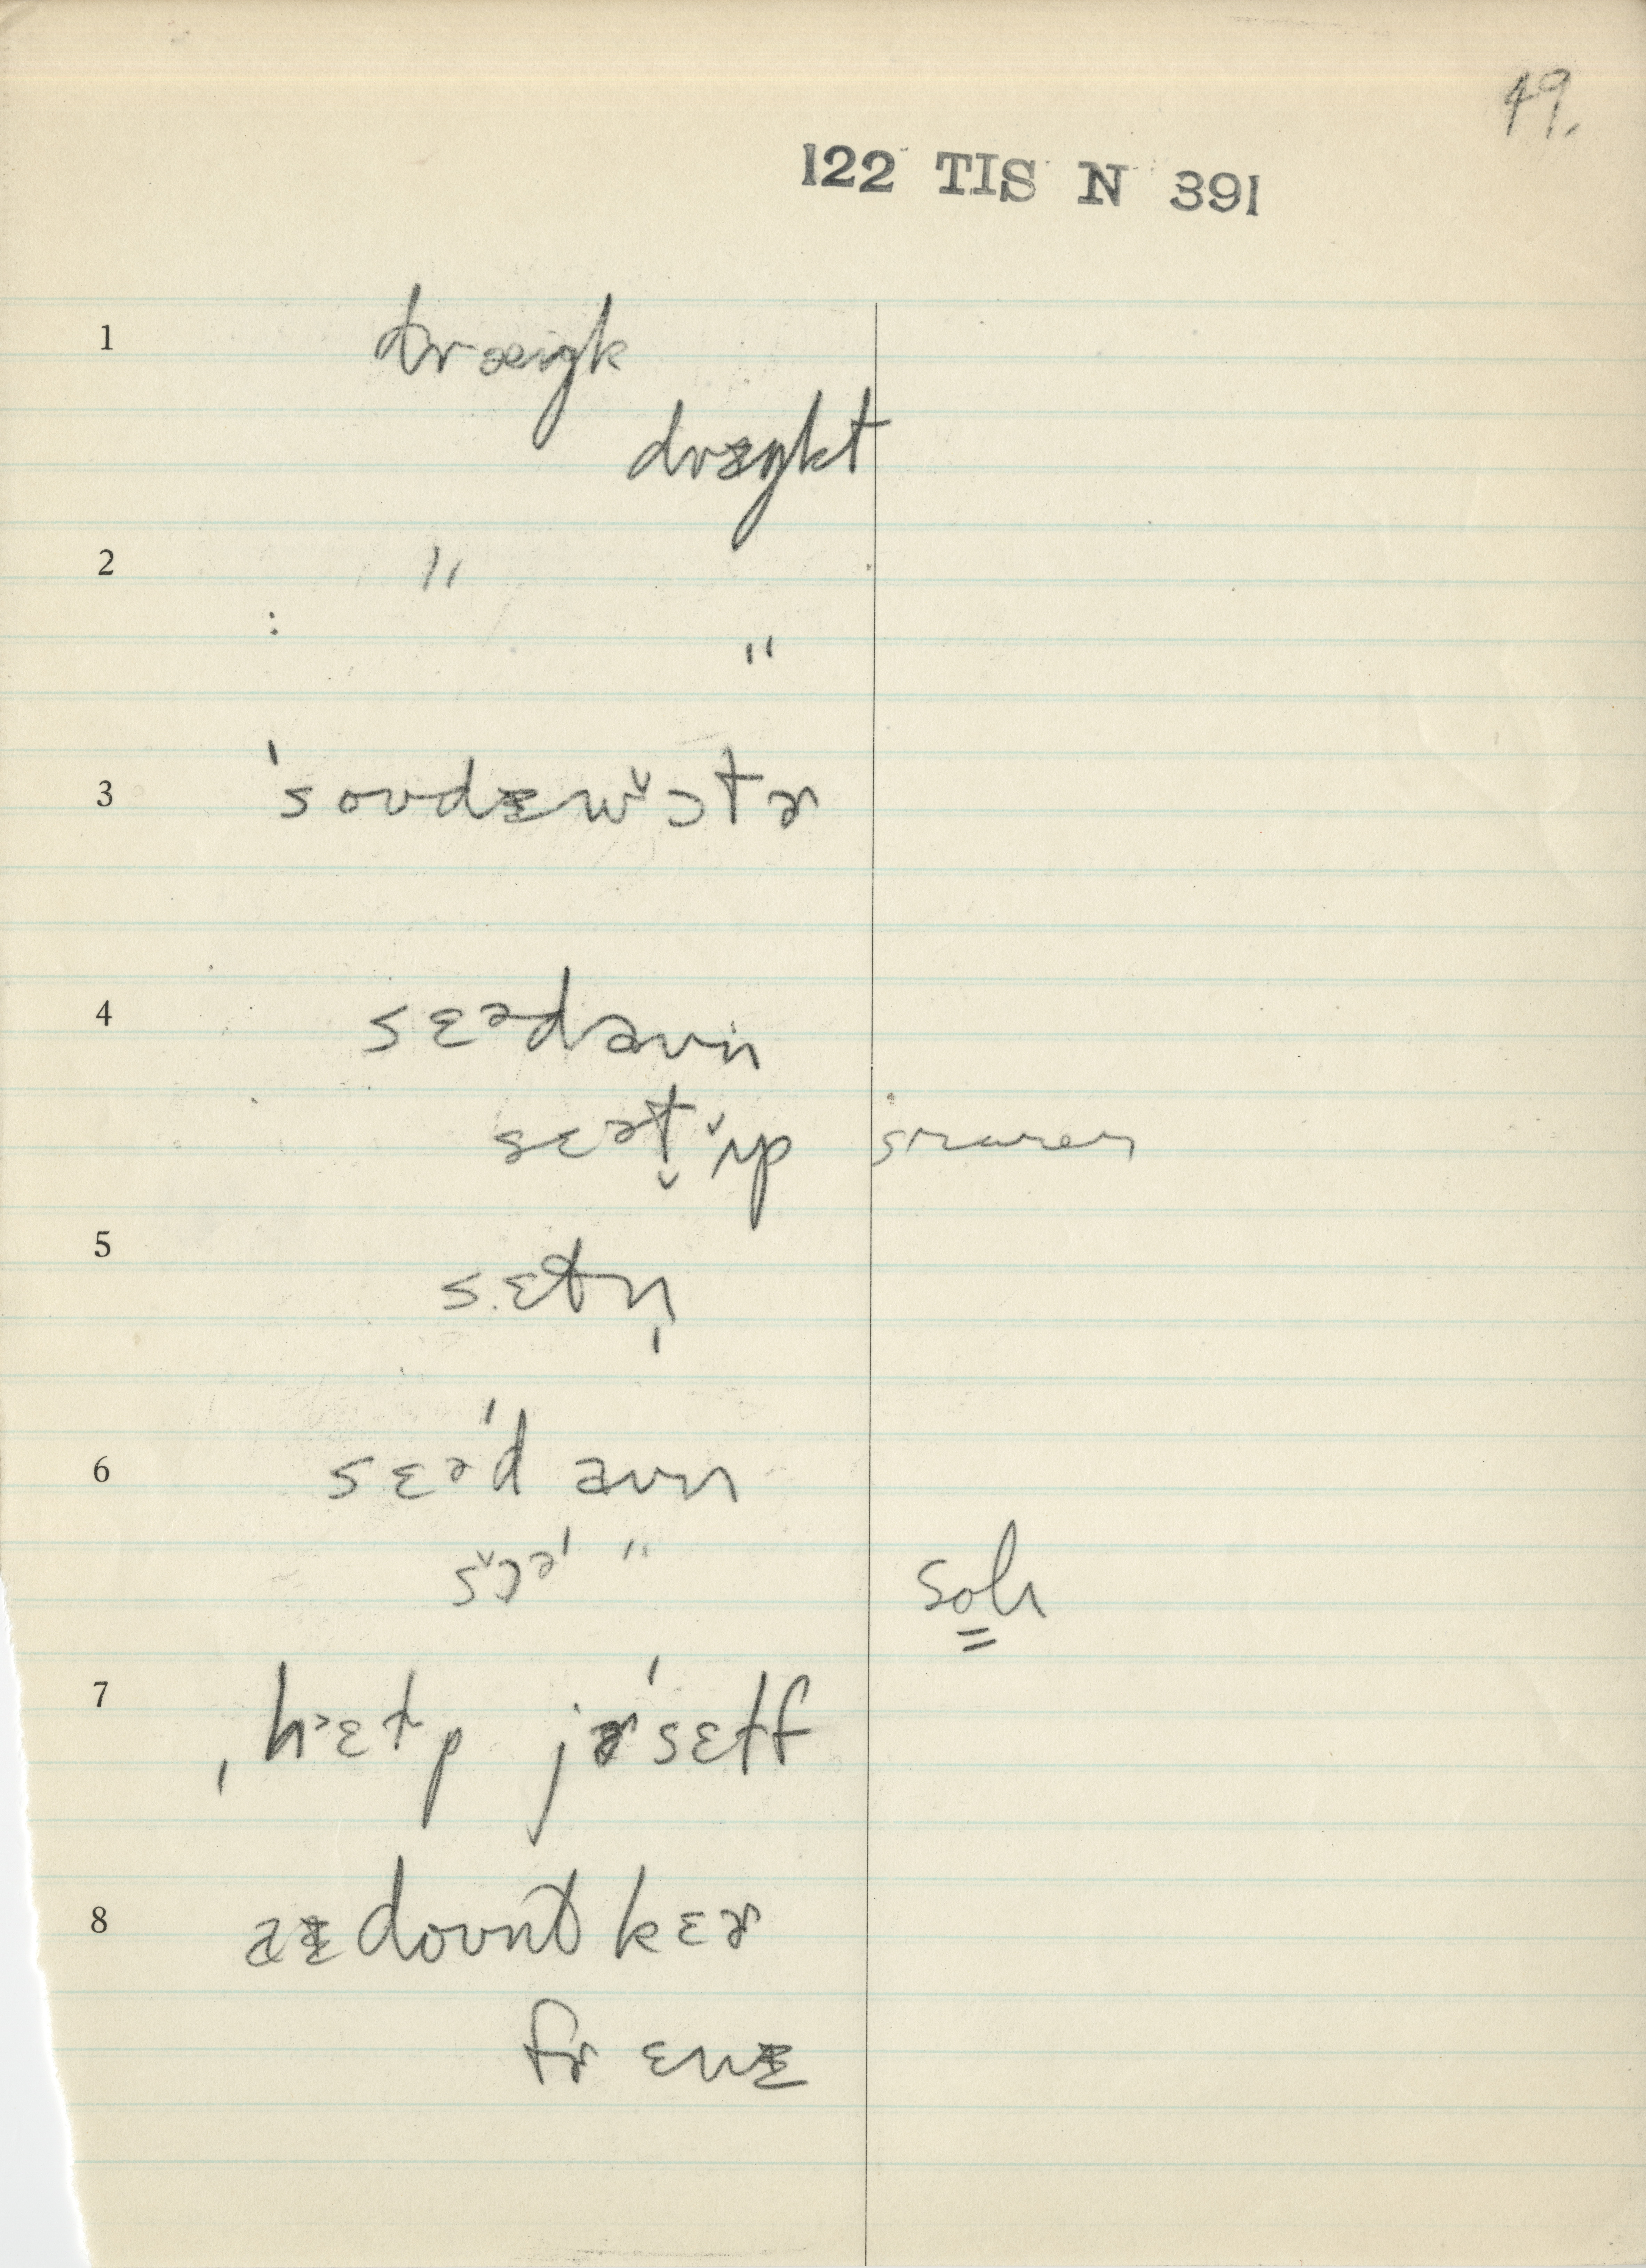 49.
122 TIS N 391
1 dræɪŋk
dræŋkt
2 "
: "
3 ˈsoʊdəwɔ̌tɚ
4 sɛədaʊn
sɛət̬ ʌ̌p
5 sɛtn̩
6 sɛəˈd aʊn
sɔ̌əˈ "
Soh
7 ˌhɛɫp jɚˈsɛɫf
8 aɪ doʊnt kɛɚ
fɚ ɛnɪ